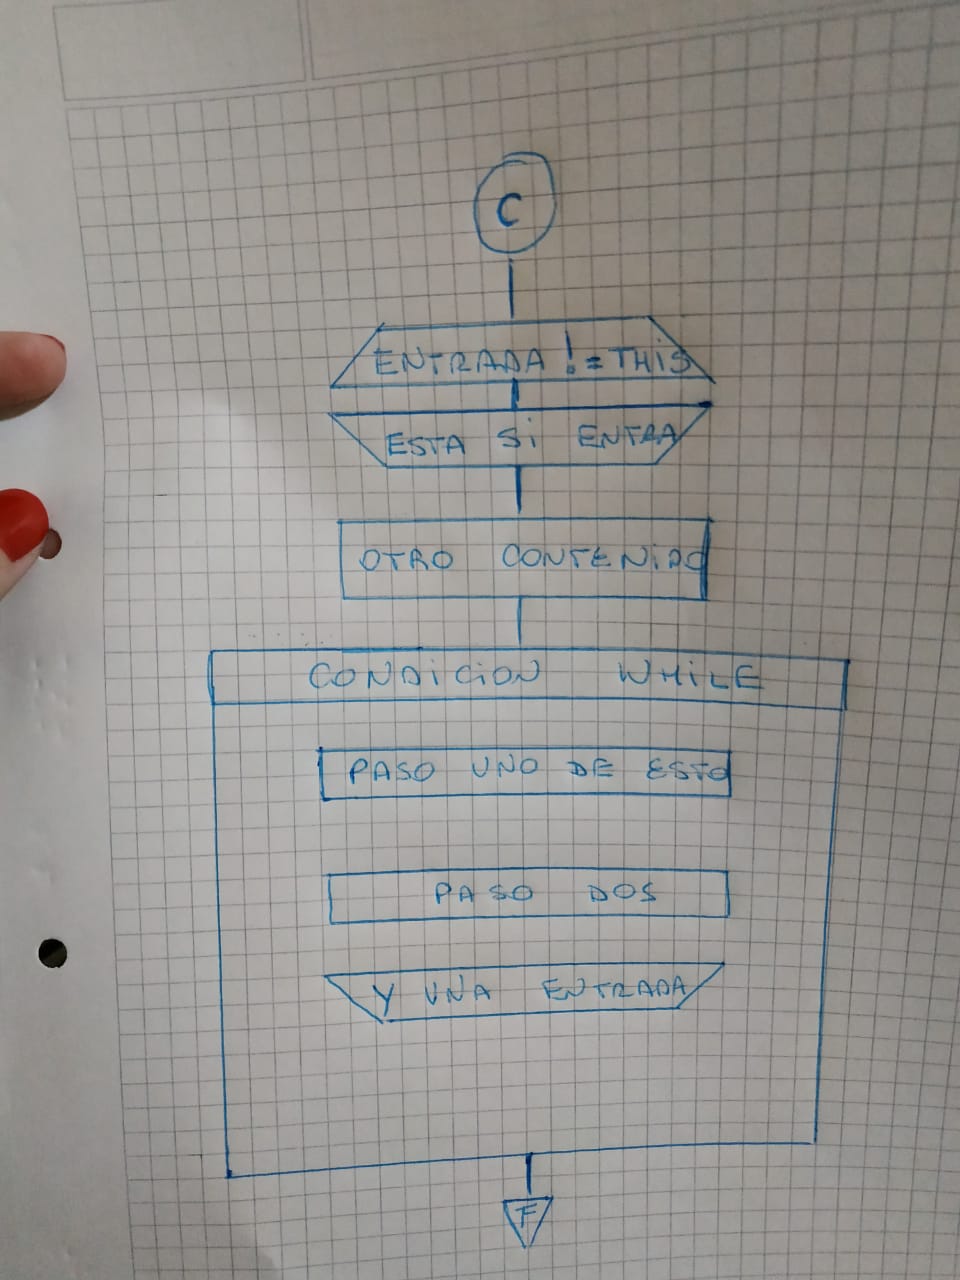 C
ENTRADA != THIS
ESTA Si ENTRA
OTRO CONTENiDO
CONDiCION WHiLE
PASO UNO DE ESTO
PASO DOS
Y UNA ENTRADA
F